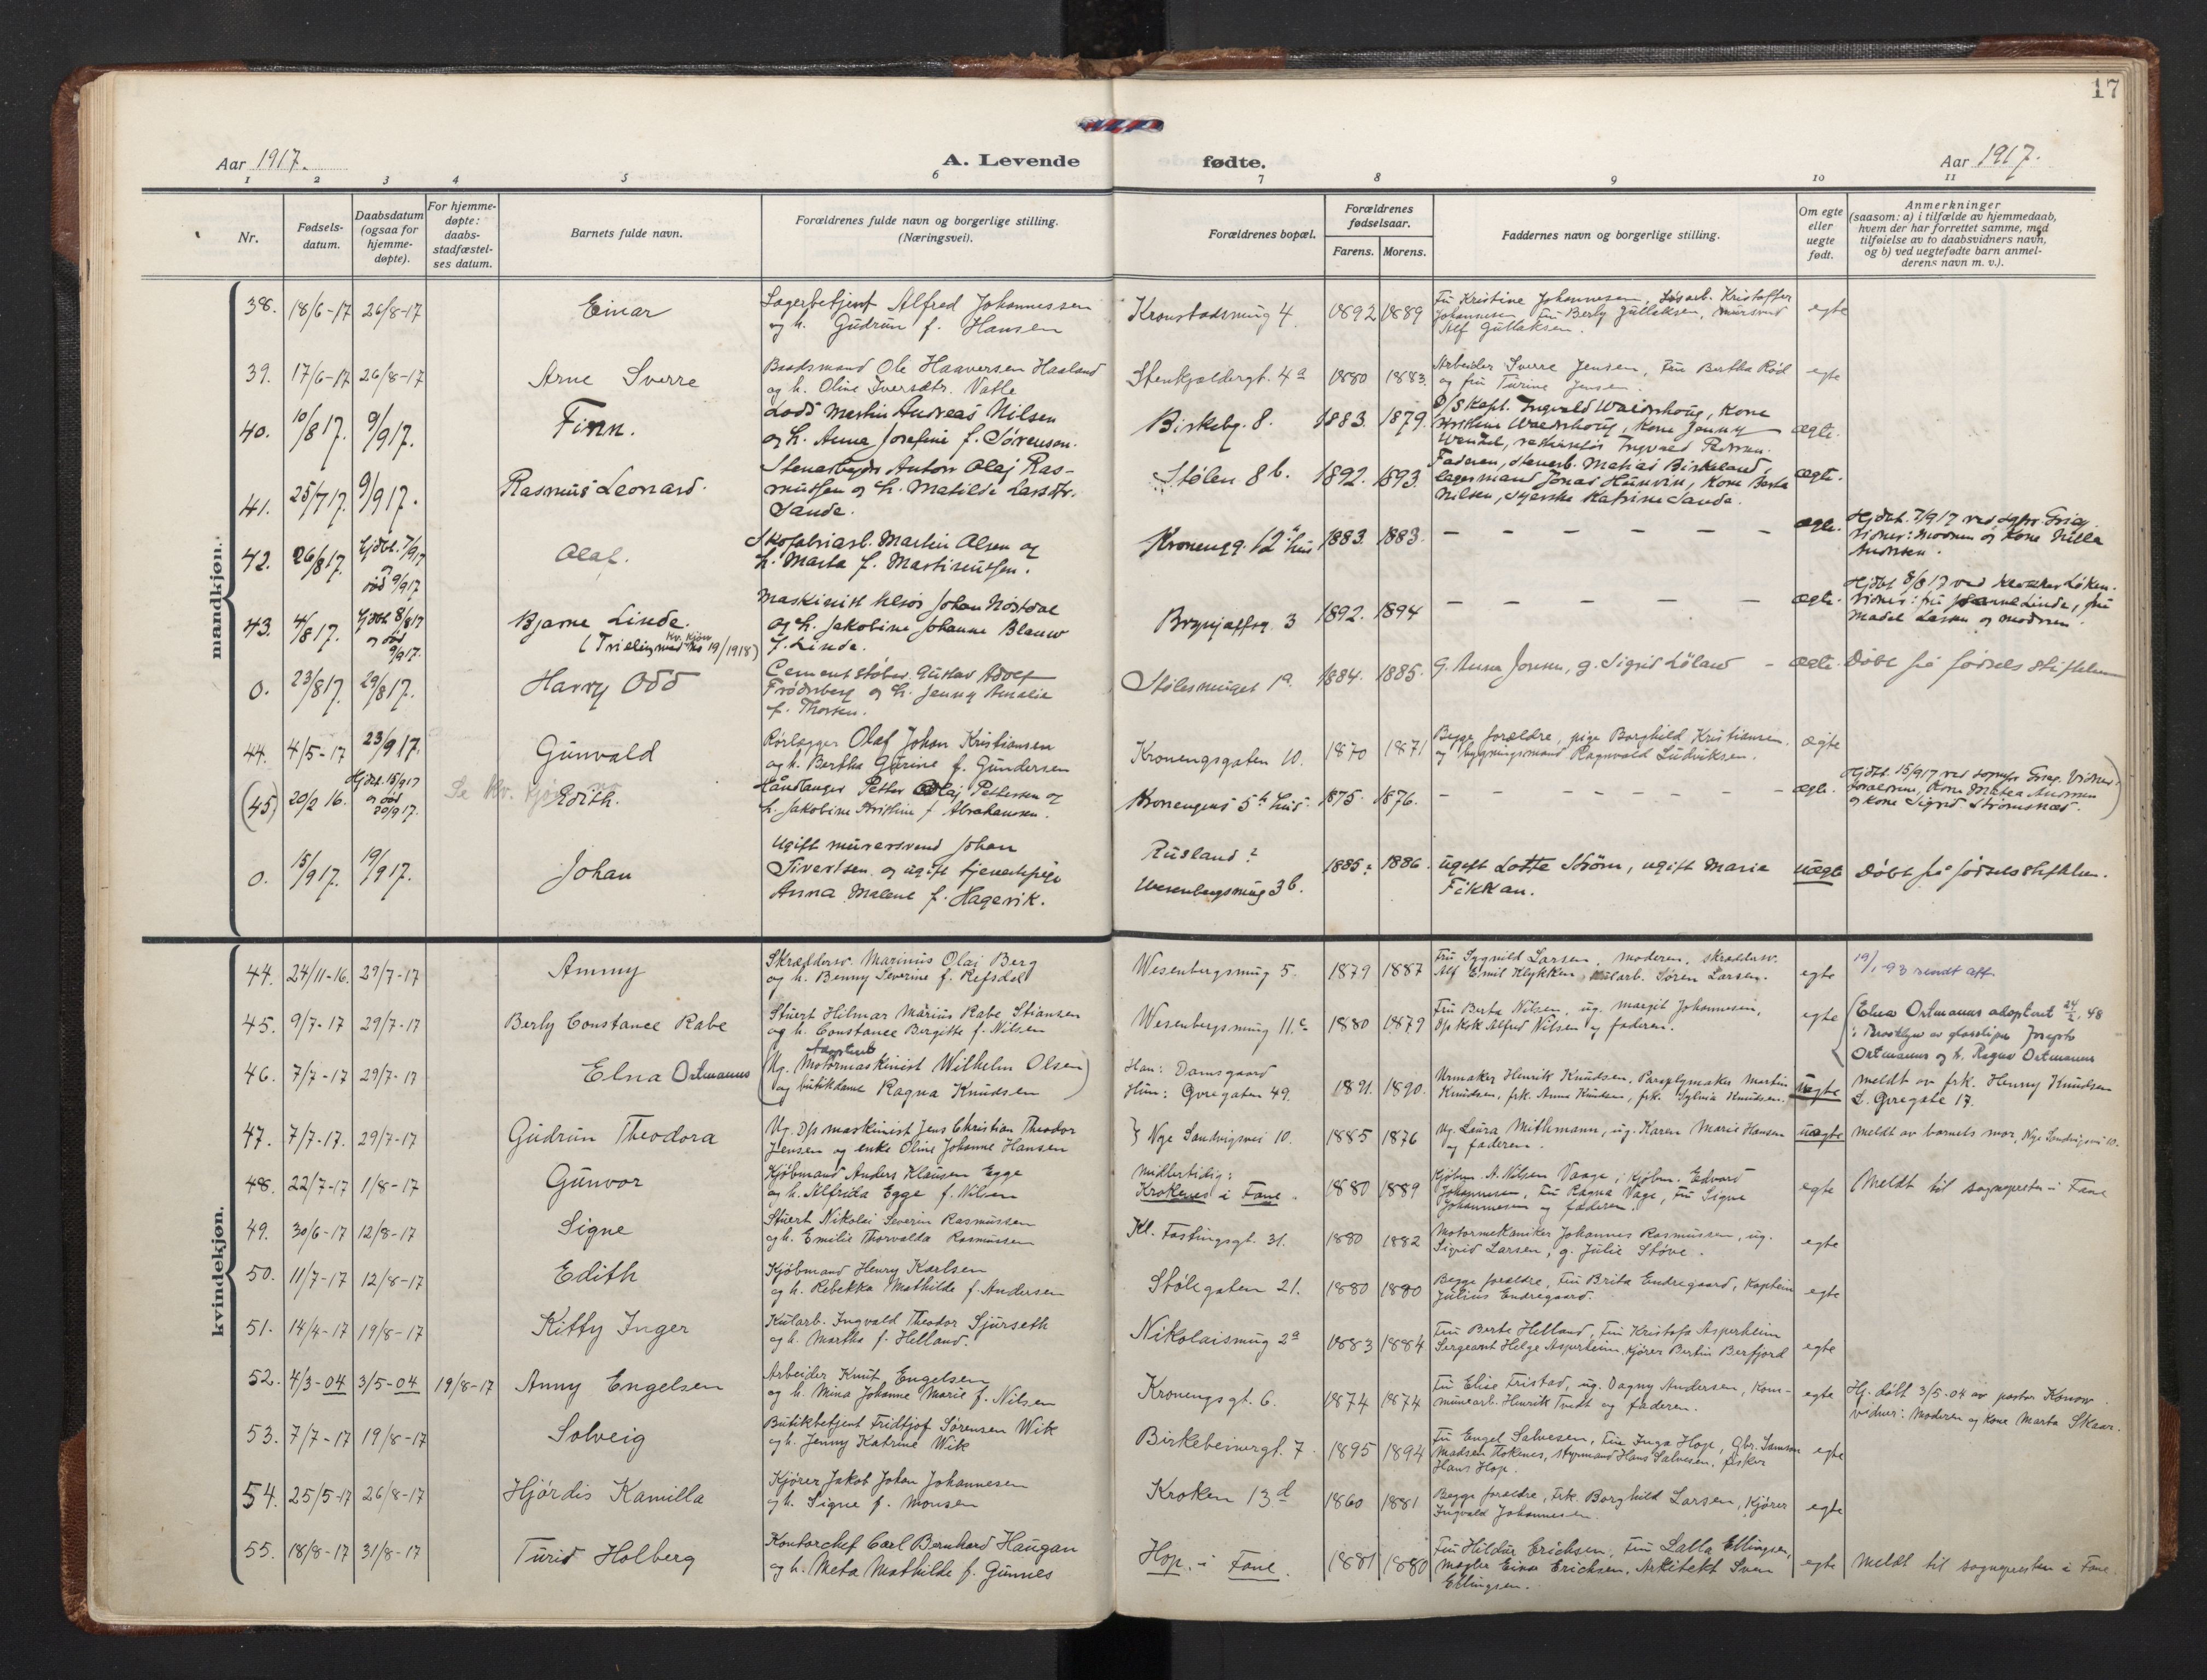 17
Aar 1917.
A. Levende
fødte.
Aar 1917.
1 2 3 4 5 6 7 8 9 10 11
Nr.
Fødsels-
datum.
Daabsdatum
(ogsaa for
hjemme-
døpte).
For hjemme-
døpte:
daabs-
stadfæstel-
ses datum.
Barnets fulde navn.
Forældrenes fulde navn og borgerlige stilling.
(Næringsvei).
Forældrenes bopæl.
Forældrenes
fødselsaar.
Farens. Morens.
Faddernes navn og borgerlige stilling.
Om egte
eller
uegte
født.
Anmerkninger
(saasom: a) i tilfælde av hjemmedaab,
hvem der har forrettet samme, med
tilføielse av to daabsvidners navn,
og b) ved uegtefødte barn anmel-
derens navn m. v.).
mandkjøn.
38. 18/6-17 26/8-17 Einar
Lagerbetjent Alfred Johannessen
og h. Gudrun f. Hansen
Kronstadsmug 4. 1892 1889
Fru Kristine Johannesen, Løsarb. Kristoffer
Johannesen, Fru Berly Gullaksen, mursvend
Alf Gullaksen.
egte
39. 17/6-17 26/8-17 Arne Sverre
Baadsmand Ole Haaversen Haaland
og h. Oline Iversdtr. Valle
Stenkjeldergt. 4a 1880 1883.
Arbeider Sverre Jensen, Fru Bertha Rød
og fru Turine Jensen.
egte
40. 10/8 17. 9/9 17. Finn.
Lods Martin Andreas Nilsen
og h. Anna Josefine f. Sørenson.
Birkebg. 8. 1883. 1879.
D/S Kapt. Ingvald Waidshoug, Kone
Kristine Waidshoug, Kone Jenny
Wendel, Ingvald Petersen.
ægte.
41. 25/7 17. 9/9 17. Rasmus Leonard.
Stenarbejder Anton Olaj Ras-
mussen og h. Matilde Larsdtr.
Sande.
Stølen 8 b. 1892. 1893.
Faderen, stenarb. Matias Birkeland,
lagermand Jonas Hunvin, Kone Berta
Nilsen, syerske Katrine Sande.
ægte.
42. 26/8 17. Hjdbt. 7/9 17
og
død 9/9 17
Olaf.
Skofabriarb. Martin Olsen og
h. Marta f. Martinussen.
Kronengg. 12 hus 1883. 1883. — — — — — — ægte.
Hjdbt. 7/9 17 ved sogpr. Grieg.
Vidner: Moderen og Kone Nilla
Andersen.
43. 4/8 17. Hjdbt. 8/8 17
og død
9/9 17.
Bjarne Linde.
(Trieling med Kv. kjøn No 19/1918)
Maskinist Klaus Johan Nøstdal
og h. Jakobine Johanne Blauw
f. Linde.
Brynjulfsg. 3 1892. 1894 — — — — — — ægte.
Hjdbt 8/8 17 ved Løken.
Vidner: fru Johanne Linde, fru
Madel Larsen og moderen.
0. 23/8 17. 29/8 17. Harry Odd
Cementstøber Gustav Adolf
Frødsberg og h. Jenny Amalie
f. Thorsen.
Stølesmuget 1a. 1884. 1885.
G. Anna Jonsen, g. Sigrid Løland — ægte. Døbt på fødselsstiftelsen
44. 4/5-17 23/9 17. Gunvald
Rørlægger Olaf Johan Kristiansen
og h. Bertha Gurine f. Gundersen
Kronengsgaten 10. 1870 1871
Begge forældre, pige Borghild Kristiansen.
og bygningsmand Ragnvald Ludviksen.
ægte
(45) 20/2 16. Hjdbt. 15/9 17
og død
20/9 17.
Se Kv. kjøn
Edith.
Håndlanger Petter Olaj Pettersen og
h. Jakobine Kristine f. Abrahamsen.
Kronengens 5te hus. 1875. 1876. — — — — — — — ægte.
Hjdbt. 15/9 17 ved sognepr. Grieg. Vidner:
forældrene, Kone Matea Andersen
og Kone Sigrid Strømsnæs.)
0. 15/9 17. 19/9 17. Johan
Ugift murersvend Johan
Sivertsen og ugift tjenestepige
Anna Malene f. Hagevik.
Rusland?
Wesenbergsmug 3 b. 1885? 1886.
ugift Lotte Strøm, ugift Marie
Fikkan.
uægte Døbt på fødselsstiftelsen.
kvindekjøn.
44. 24/11-16. 29/7-17 Ammy
Skræddersv. Marinus Olai Berg
og h. Benny Severine f. Refsdal
Wesenbergsmug 5. 1879 1887
Fru Sygnild Larsen, moderen, skræddersv.
Alf Emil Klykken, kularb. Søren Larsen.
egte 19/1 93 sendt att.
45. 9/7-17 29/7-17 Berly Constance Rabe
Stuert Hilmar Marius Rabe Stiansen
og h. Constance Bergitte f. Nilsen
Wesenbergsmug 11 c 1880 1879
Fru Berta Nilsen, ug. Margit Johannesen,
Dp kok Alfred Nilsen og faderen.
egte
(Elna Ortmanns adoptert 24/2 48
i Brooklyn av Joseph
Ortmanns og h. Ragna Ortmanns
46. 7/7-17 29/7-17 Elna Ortmanns
Adopteret
(Ug. Motormaskinist Wilhelm Olsen
og butikdame Ragna Knudsen)
Han: Damsgaard
Hun: Øvregaten 49. 1891. 1890.
Urmaker Henrik Knudsen, Paraplymaker Martin
Knudsen, frk. Anna Knudsen, frk. Sylvia Knudsen.
uegte
meldt av frk. Henny Knudsen
L. Øvregate 17.
47. 7/7-17. 29/7-17 Gudrun Theodora
Ug. Dp maskinist Jens Christian Theodor
Jensen og enke Oline Johanne Hansen
} Nye Sandvigsvei 10. 1885 1876
Ug. Laura Mithmann, ug. Karen Marie Hansen
og faderen.
uegte meldt av barnets mor, Nye Sandvigsvei 10.
48. 22/7-17 1/8-17 Gunvor
Kjøbmand Anders Klausen Egge
og h. Alfrida Egge f. Nilsen
Midlertidig:
Krokenes i Fane. 1880 1889
Kjøbm. A. Nilsen Vaage, Kjøbm. Edvard
Johannesen, Fru Ragna Vage, Fru Signe
Johannesen og faderen.
egte Meldt til sognepresten i Fane
49. 30/6-17 12/8-17 Signe
Stuert Nikolai Severin Rasmussen
og h. Emilie Thorvalda Rasmussen
Kl. Fastingsgt. 31. 1880 1882
Motormekaniker Johannes Rasmussen, ug.
Sigrid Larsen, g. Julie Støve.
egte
50. 11/7-17 12/8-17 Edith
Kjøbmand Henry Karlsen
og h. Rebekka Mathilde f. Andersen
Stølegaten 21. 1880 1880
Begge forældre, Fru Brita Endregaard, Kaptein
Julius Endregaard.
egte
51. 14/4-17 19/8-17 Kitty Inger
Kularb. Ingvald Theodor Sjurseth
og h. Martha f. Helland.
Nikolaismug 2a 1883 1884
Fru Berte Helland, Fru Kristofa Asperheim
Sergeant Helge Asperheim, Kjører Bertin Berfjord
egte
52. 4/3-04 3/5-04 19/8-17 Anny Engelsen
Arbeider Knut Engelsen
og h. Mina Johanne Marie f. Nilsen
Kronengsgt. 6. 1874 1874
Fru Elise Fristad, ug. Dagny Andersen, Kom-
munearb. Henrik Tvedt og faderen.
egte
Hj. døbt 3/5-04 av pastor Konow
vidner: Moderen og Kone Marta Skaar.
53. 7/7-17 19/8-17 Solveig
Butikbetjent Fridtjof Sørensen Wik
og h. Jenny Katrine Wik
Birkebeinergt. 7. 1895 1894
Fru Engel Salvesen, Fru Inga Hop, Gbr. Samson
Madsen Flokenes, styrmand Hans Salvesen, fisker
Hans Hop.
egte
54. 25/5-17 26/8-17 Hjørdis Kamilla
Kjører Jakob Johan Johannesen
og h. Signe f. Monsen
Kroken 13 d 1860 1881
Begge forældre, Frk. Borghild Larsen, Kjører
Ingvald Johannesen.
egte
55. 18/8-17 31/8-17 Turid Holberg
Kontorchef Carl Bernhard Haugan
og h. Meta Mathilde f. Gunnes
Hop. i Fane. 1881 1880
Fru Hildur Erichsen, Fru Lalla Ellingsen,
Mægler Einar Erichsen, Arkitekt Sven
Ellingsen.
egte Meldt til sognepresten i Fane.